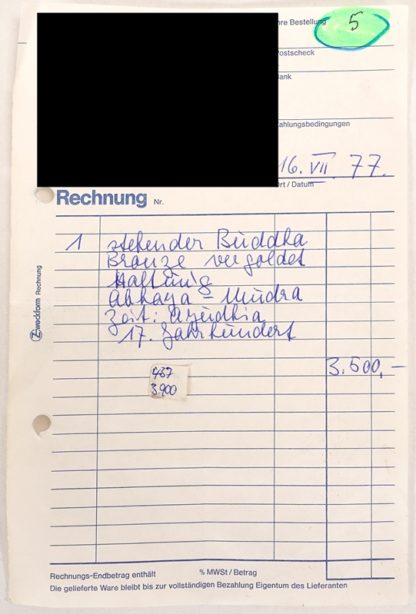 hre Bestellung
5
Postscheck
Bank
Zahlungsbedingungen
16. VII. 77.
Ort / Datum
Rechnung Nr.
1 stehender Buddha
Bronze vergoldet
Haltung
Abhaya - Mudra
Zeit: Ayudhia
17. Jahrhundert
3.500,-
437
3900
Zweckform Rechnung
Rechnungs-Endbetrag enthält % MWSt / Betrag
Die gelieferte Ware bleibt bis zur vollständigen Bezahlung Eigentum des Lieferanten